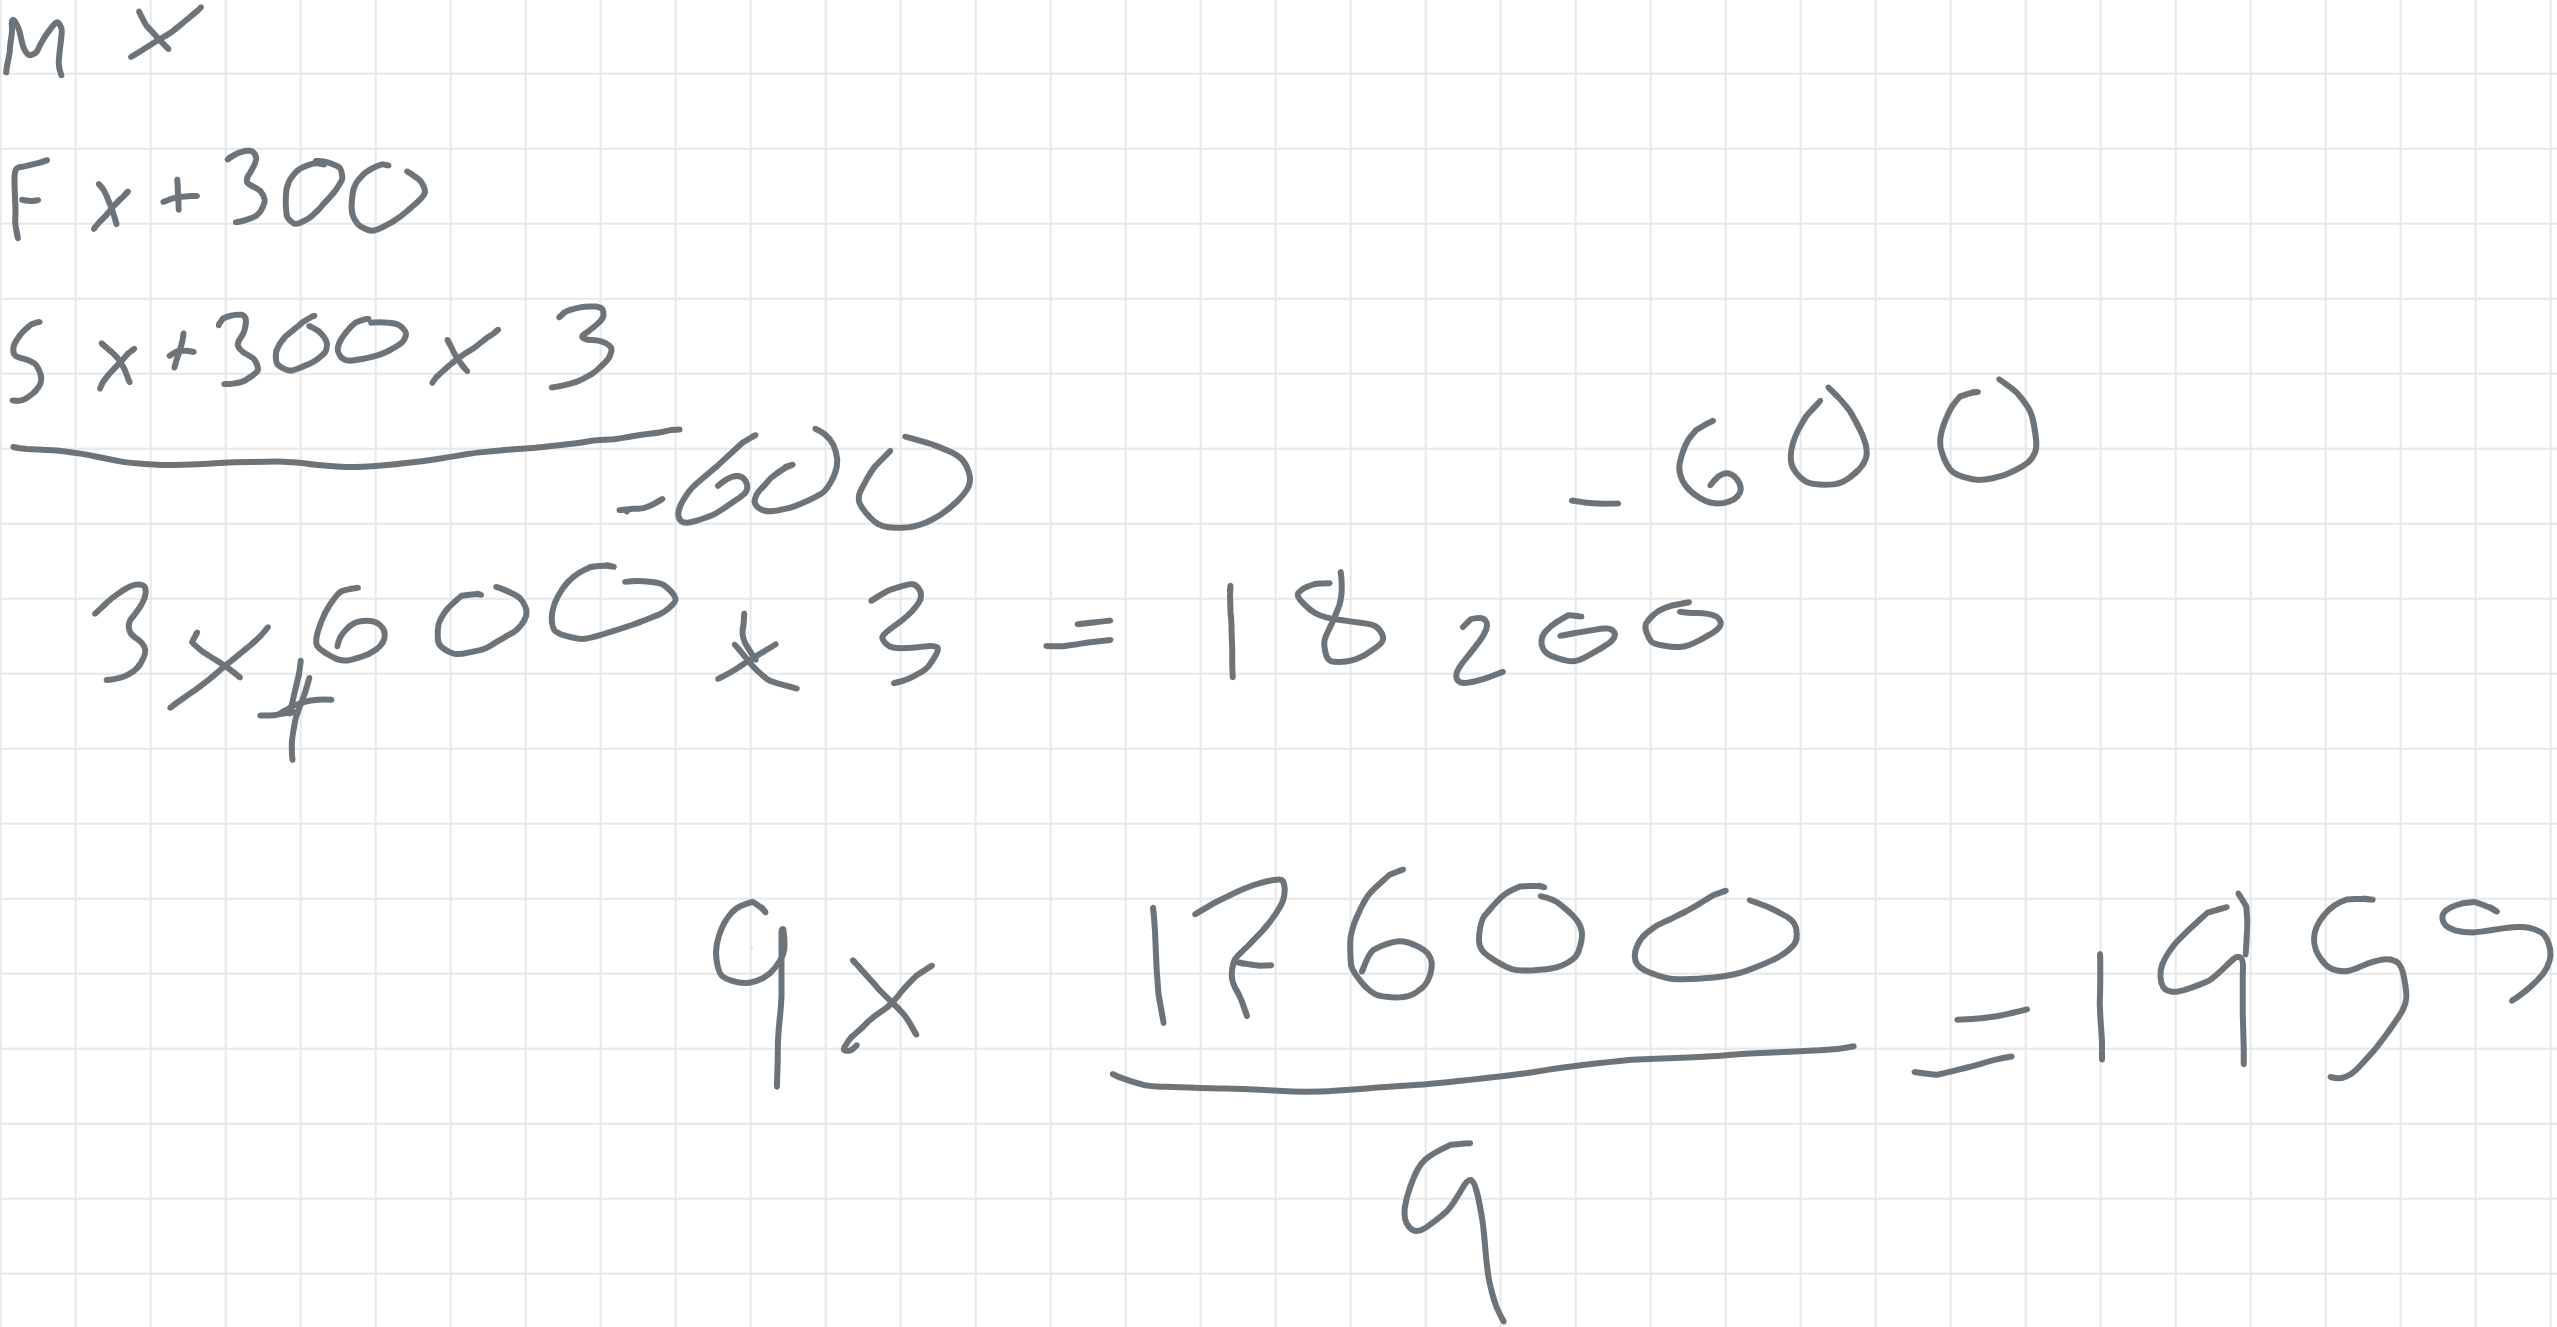 M x
F x+300
S x+300 x 3
-600 -600
3x+600 x 3 = 18 200
9x 17600 = 1955
9